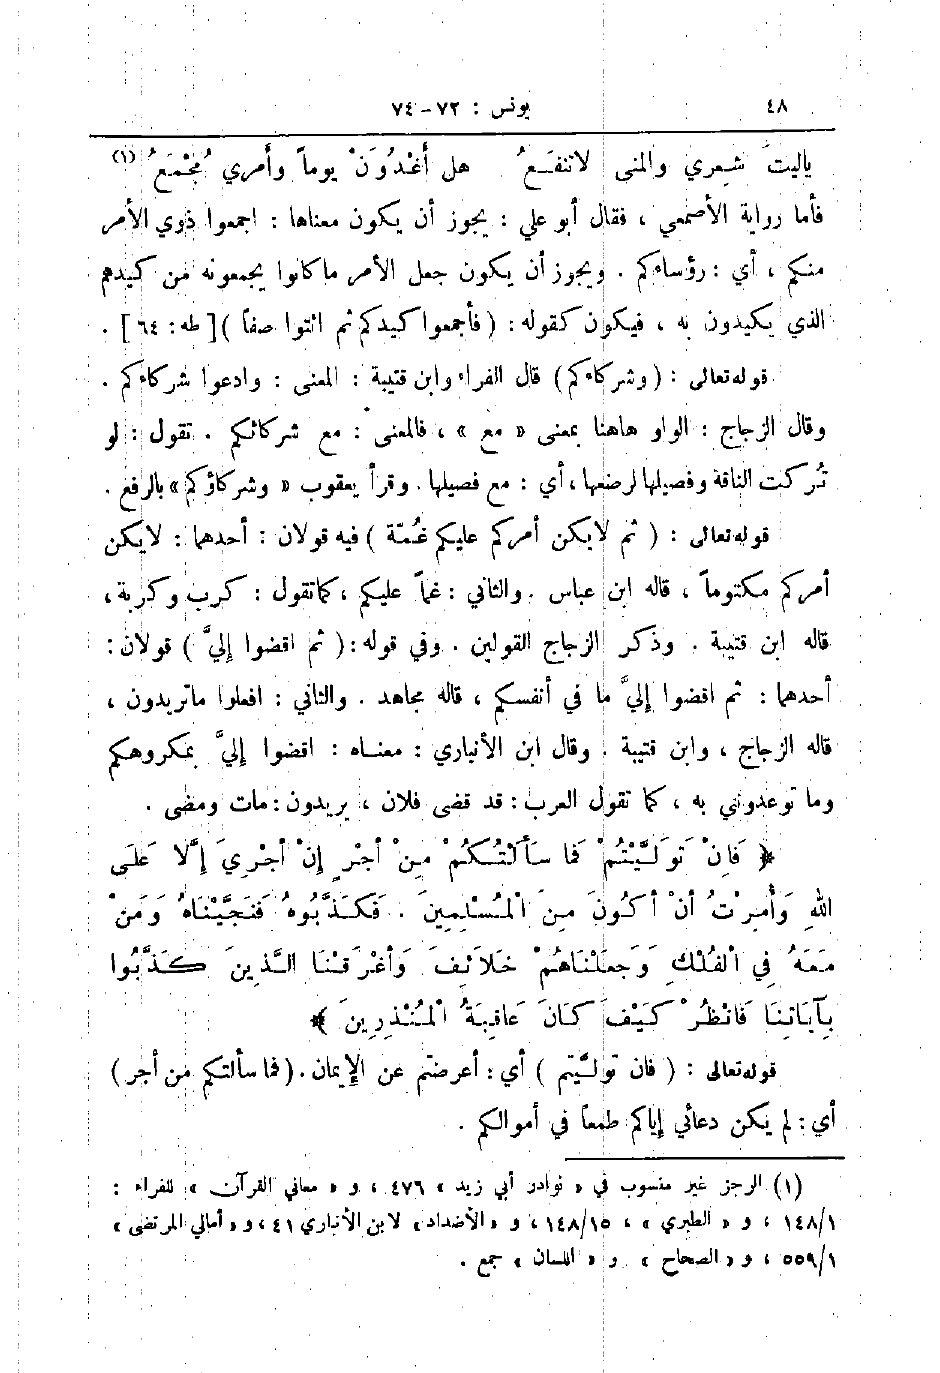 ٤٨
يونس : ٧٢-٧٤
ياليتَ شِعري والمنى لاتنفَعُ هل أَغْدُوَنْ يوماً وأمري مُجْمَعُ (١)
فأما رواية الأصمعي ، فقال أبو علي : يجوز أن يكون معناها : اجمعوا ذوي الأمر
منكم ، أي : رؤساءكم . ويجوز أن يكون جعل الأمر ما كانوا يجمعونه من كيدهم
الذي يكيدون به ، فيكون كقوله : ( فأجمعوا كيدكم ثم ائتوا صفاً )[ طه : ٦٤ ] .
قوله تعالى : ( وشركاءكم ) قال الفراء وابن قتيبة : المعنى : وادعوا شركاءكم .
وقال الزجاج : الواو هاهنا بمعنى « مع » ، فالمعنى : مع شركائكم . تقول : لو
تُركت الناقة وفصيلها لرضعها ، أي : مع فصيلها . وقرأ يعقوب « وشركاؤكم » بالرفع .
قوله تعالى : ( ثم لايكن أمركم عليكم غُمّة ) فيه قولان : أحدهما : لايكن
أمركم مكتوماً ، قاله ابن عباس . والثاني : غماً عليكم ، كما تقول : كرب وكربة ،
قاله ابن قتيبة . وذكر الزجاج القولين . وفي قوله : ( ثم اقضوا إليَّ ) قولان :
أحدهما : ثم اقضوا إليَّ ما في أنفسكم ، قاله مجاهد . والثاني : افعلوا ماتريدون ،
قاله الزجاج ، وابن قتيبة . وقال ابن الأنباري : معناه : اقضوا إليَّ بمكروهكم
وما توعدونني به ، كما تقول العرب : قد قضى فلان ، يريدون : مات ومضى .
﴿ فَإِنْ تَوَلَّيْتُمْ فَمَا سَأَلْتُكُمْ مِنْ أَجْرٍ إِنْ أَجْرِيَ إِلَّا عَلَى
اللهِ وَأُمِرْتُ أَنْ أَكُونَ مِنَ الْمُسْلِمِينَ . فَكَذَّبُوهُ فَنَجَّيْنَاهُ وَمَنْ
مَعَهُ فِي الْفُلْكِ وَجَعَلْنَاهُمْ خَلَائِفَ وَأَغْرَقْنَا الَّذِينَ كَذَّبُوا
بِآيَاتِنَا فَانْظُرْ كَيْفَ كَانَ عَاقِبَةُ الْمُنْذَرِينَ ﴾
قوله تعالى : ( فان تولَّيتم ) أي : أعرضتم عن الإيمان . ( فما سألتكم من أجر )
أي : لم يكن دعائي إياكم طمعاً في أموالكم .
(١) الرجز غير منسوب في « نوادر أبي زيد » ٤٧٦ ، و « معاني القرآن » للفراء :
١٤٨/١ ، و « الطبري » ، ١٤٨/١٥ ، و « الأضداد » لابن الأنباري ٤١ ، و « أمالي المرتضى »
٥٥٩/١ ، و « الصحاح » و « اللسان » جمع .